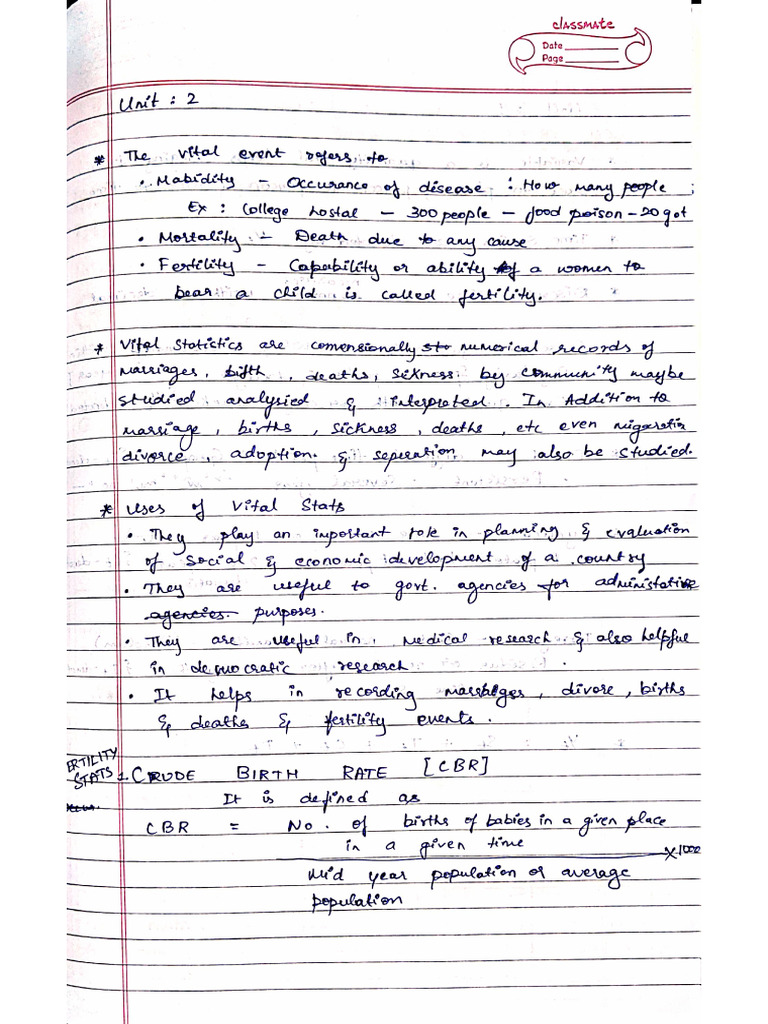 classmate
Date
Page
Unit : 2
* The vital event refers to
• Mabidity - Occurance of disease : How many people ;
Ex : College hostal - 300 people - food poison - 20 got
• Mortality - Death due to any cause
• Fertility - Capability or ability of a women to
bear a child is called fertility.
* Vital Statictics are convensionally numerical records of
marriages, birth, deaths, sickness by community maybe
studied analysied & interpreted. In Addition to
marriage, births, sickness, deaths, etc even migration
divorce, adoption. & seperation may also be studied.
* Uses of Vital Stats
• They play an important role in planning & evaluation
of social & economic development of a country
• They are useful to govt. agencies for administative
agencies. purposes.
• They are useful in medical research & also helpful
in democratic research
• It helps in recording marriages, divore, births
& deaths & fertility events.
FERTILITY
STATS 1. CRUDE BIRTH RATE [CBR]
It is defined as
CBR = No. of births of babies in a given place
in a given time
X 1000
Mid year population or average
population